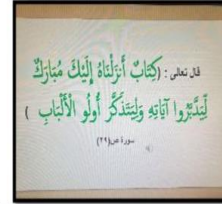 قال تعالى : (كِتَابٌ أَنزَلْنَاهُ إِلَيْكَ مُبَارَكٌ
لِّيَدَّبَّرُوا آيَاتِهِ وَلِيَتَذَكَّرَ أُولُو الْأَلْبَابِ )
سورة ص(٢٩)